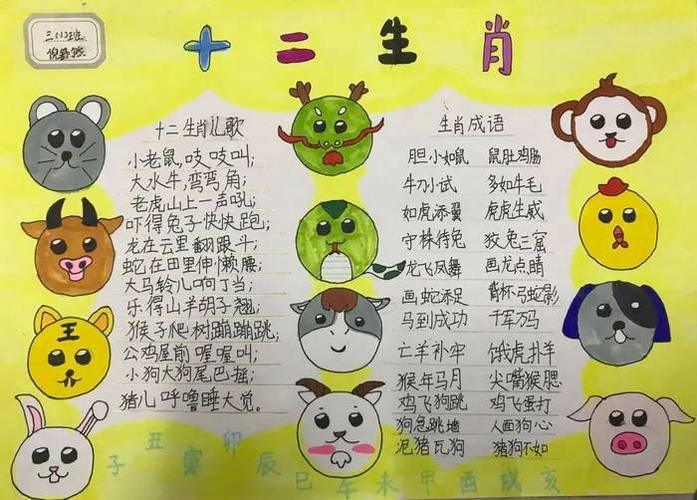 十二生肖
三(1)班
十二生肖儿歌
小老鼠,吱吱叫;
大水牛,弯弯角;
老虎山上一声吼;
吓得兔子快快跑;
龙在云里翻跟斗;
蛇在田里伸懒腰;
大马铃儿响叮当;
乐得山羊胡子翘;
猴子爬树蹦蹦跳;
公鸡屋前喔喔叫;
小狗大狗尾巴摇;
猪儿呼噜睡大觉。
王
生肖成语
胆小如鼠 鼠肚鸡肠
牛刀小试 多如牛毛
如虎添翼 虎虎生威
守株待兔 狡兔三窟
龙飞凤舞 画龙点睛
画蛇添足 杯弓蛇影
马到成功 千军万马
亡羊补牢 饿虎扑羊
猴年马月 尖嘴猴腮
鸡飞狗跳 鸡飞蛋打
狗急跳墙 人面狗心
泥猪瓦狗 猪狗不如
子 丑 寅 卯 辰 巳 午 未 申 酉 戌 亥